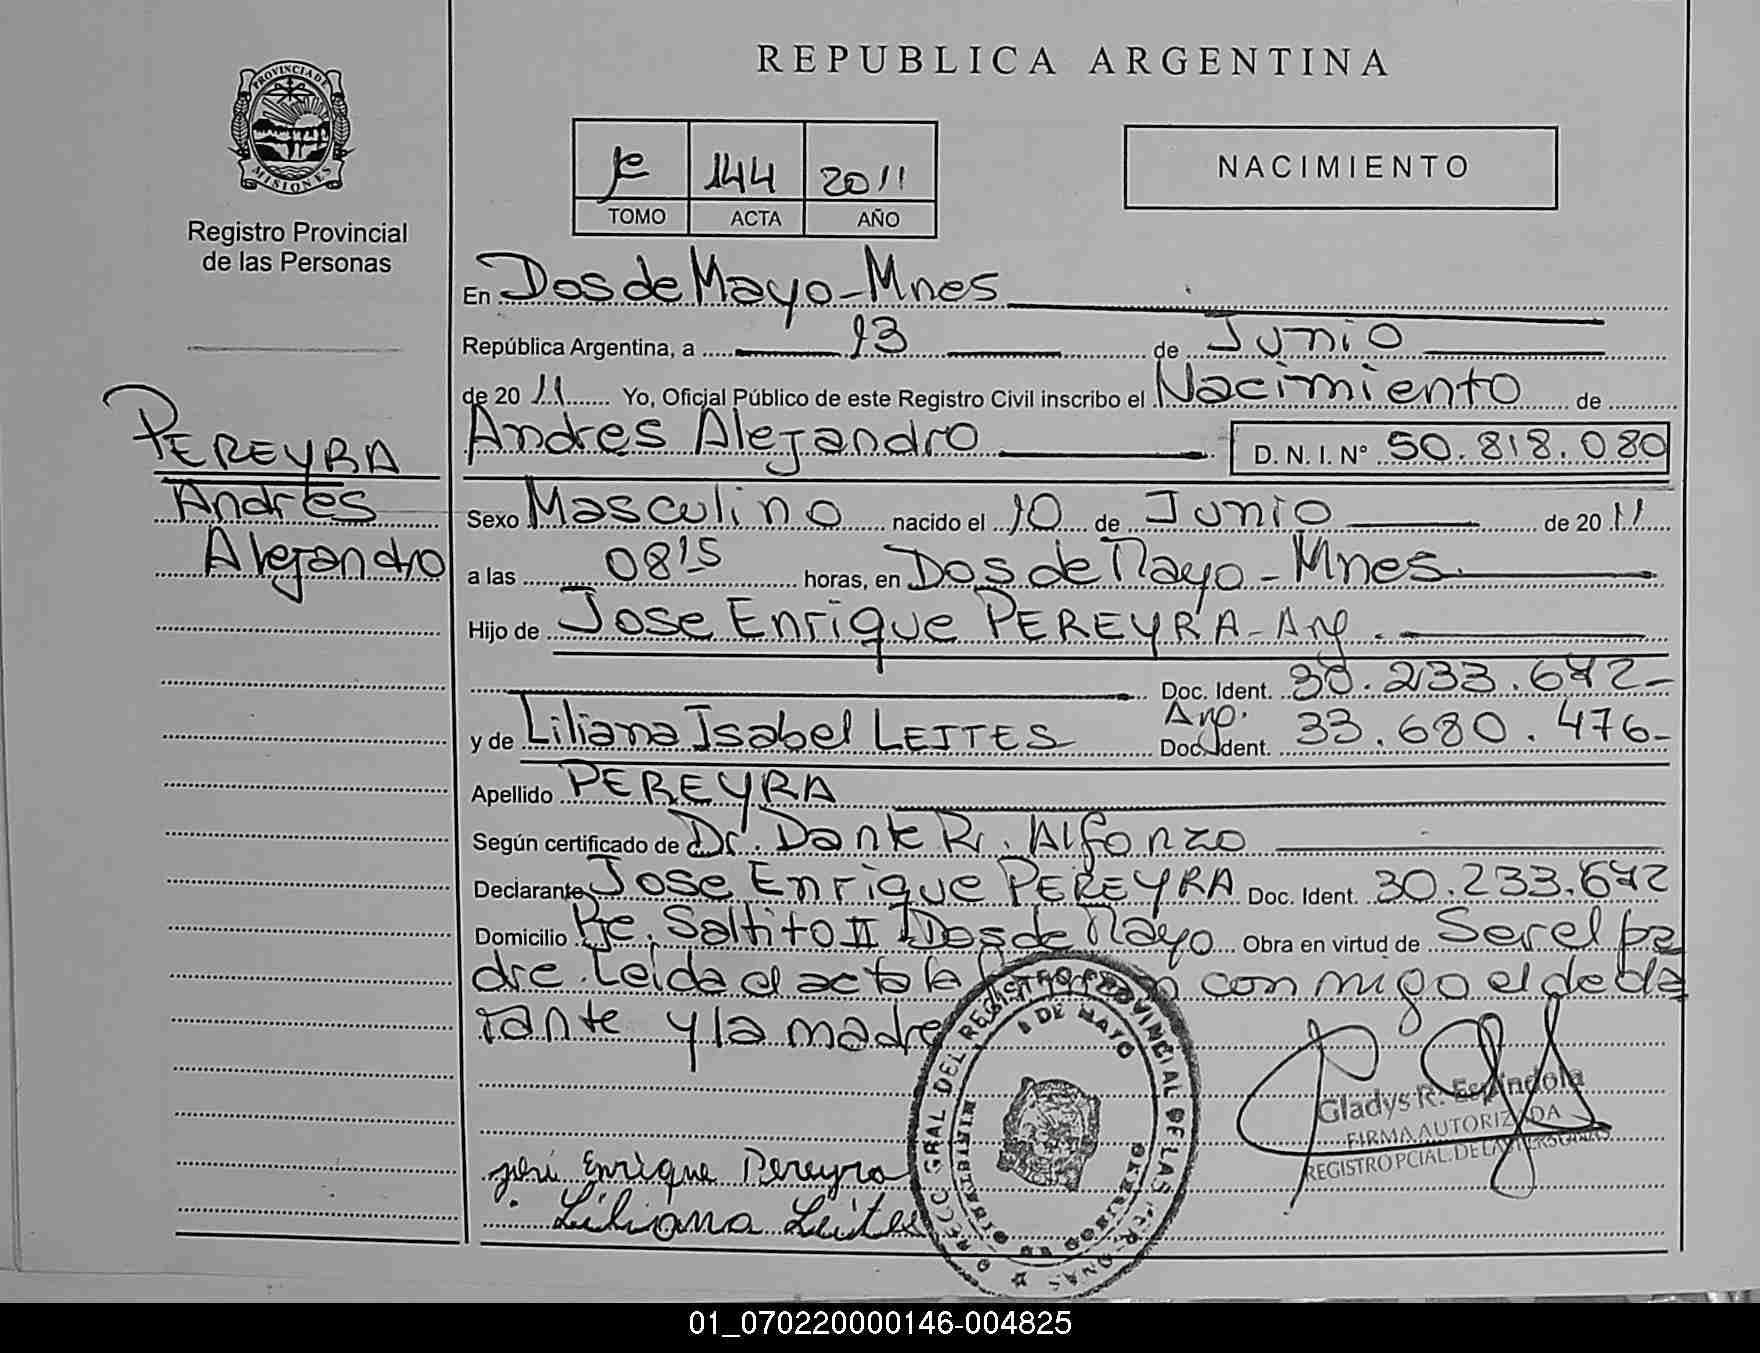 PROVINCIA DE
MISIONES
Registro Provincial
de las Personas
PEREYRA
Andrés
Alejandro
REPUBLICA ARGENTINA
144 2011
TOMO ACTA AÑO
NACIMIENTO
En Dos de Mayo - Mnes
República Argentina, a 13 de Junio
de 2011 Yo, Oficial Público de este Registro Civil inscribo el Nacimiento de
Andres Alejandro D. N. I. Nº 50.818.080
Sexo Masculino nacido el 10 de Junio de 2011
a las 0815 horas, en Dos de Mayo - Mnes
Hijo de Jose Enrique PEREYRA - Arg.
Doc. Ident. 30.233.672-
y de Liliana Isabel LEITES Arg. Doc. Ident. 33.680.476-
Apellido PEREYRA
Según certificado de Dr. Dante R. Alfonzo
Declarante Jose Enrique PEREYRA Doc. Ident. 30.233.672
Domicilio Pje. Saltito II Dos de Mayo Obra en virtud de Ser el pa
dre. Leida el acta la con migo el decla
rante y la madre
DIRECC GRAL DEL REGISTRO PROVINCIAL DE LAS PERSONAS
DE MAYO
Gladys R. Espíndola
FIRMA AUTORIZADA
REGISTRO PCIAL. DE LAS PERSONAS
José Enrique Pereyra
Liliana Leites
01_070220000146-004825